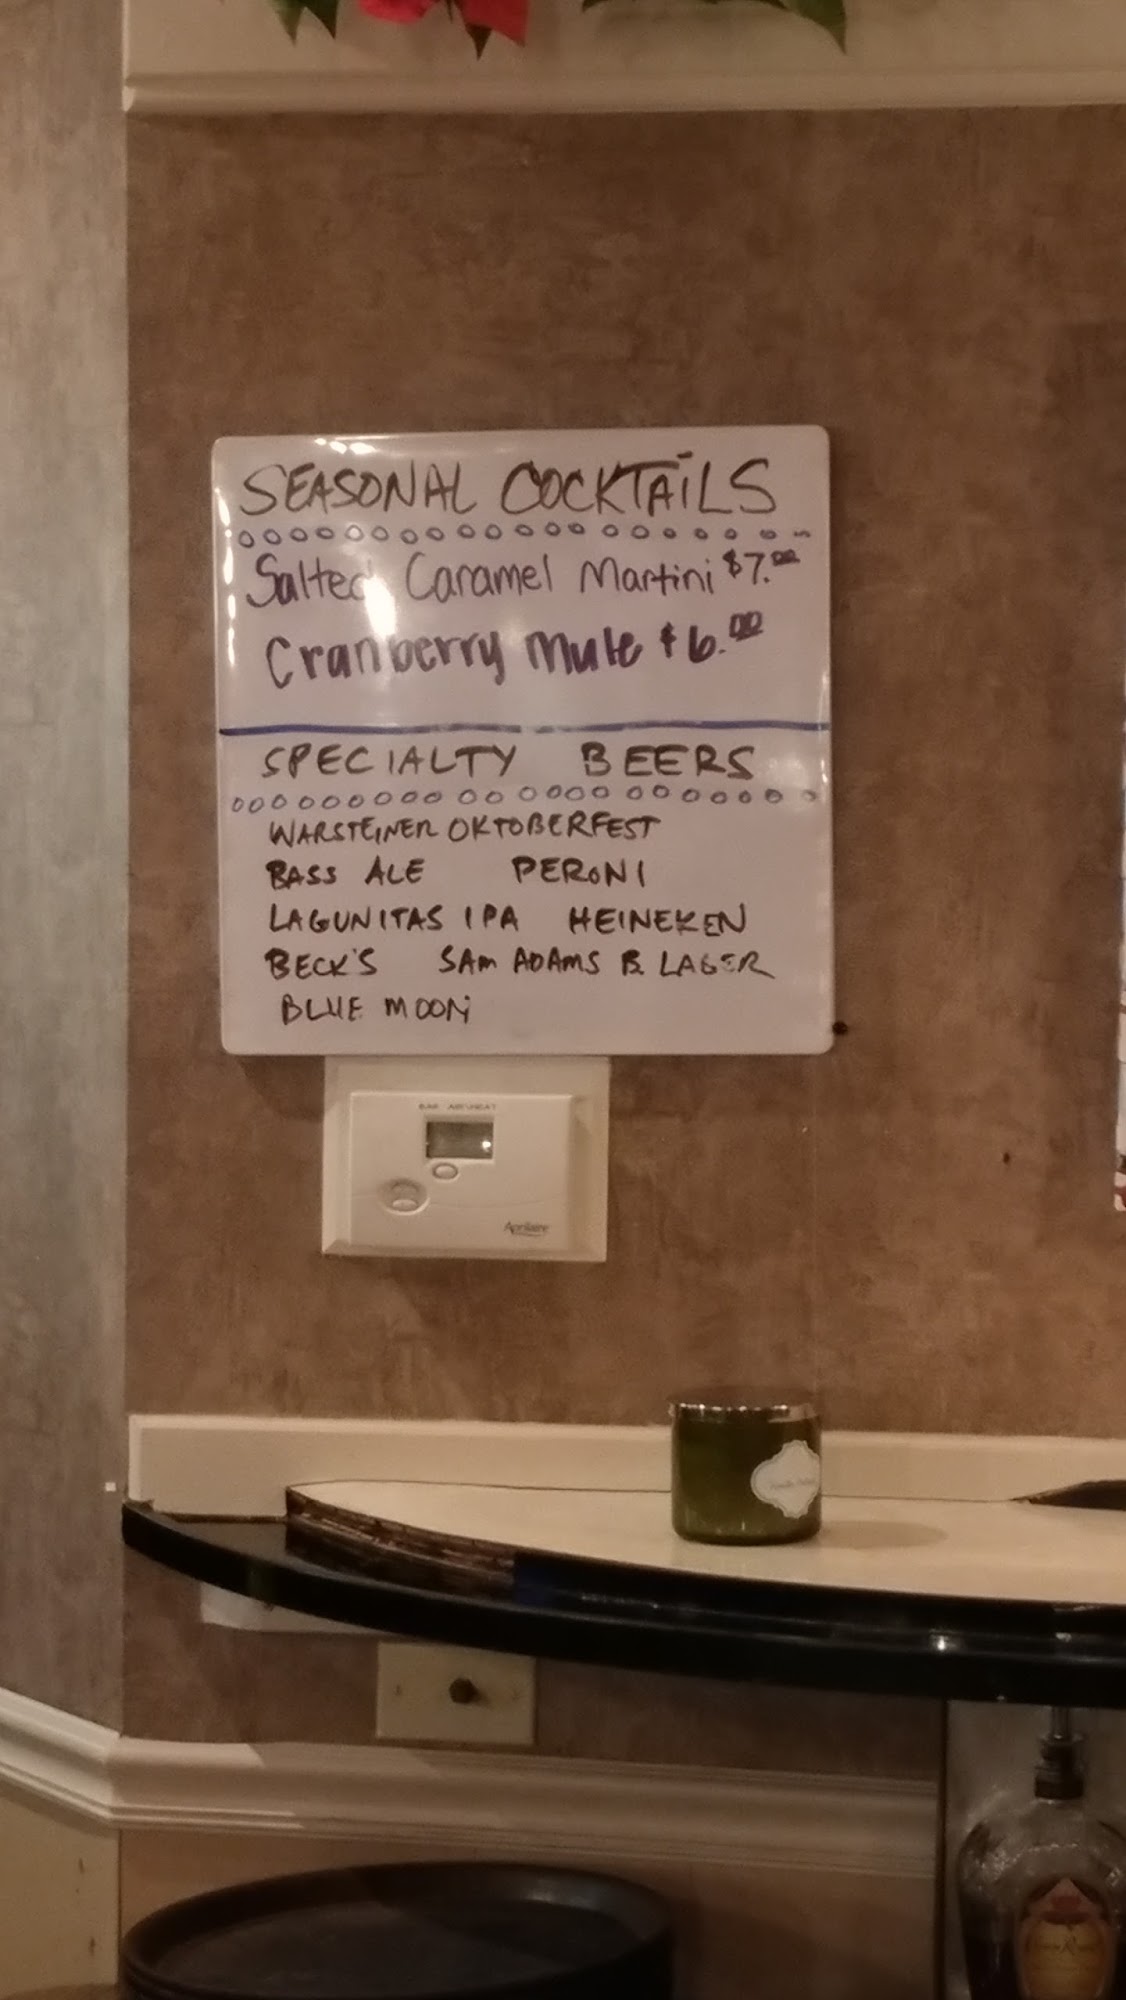 SEASONAL COCKTAILS
Salted Caramel Martini $7.00
Cranberry Mule $6.00
SPECIALTY BEERS
WARSTEINER OKTOBERFEST
BASS ALE PERONI
LAGUNITAS IPA HEINEKEN
BECK'S SAM ADAMS B. LAGER
BLUE MOON
Aprilaire
Crown Royal